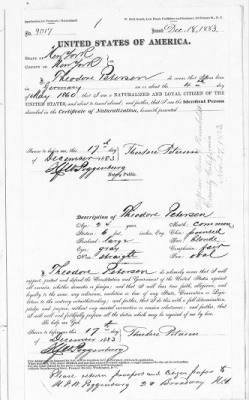 No. 9017
Issued Dec. 18, 1883
UNITED STATES OF AMERICA.
STATE OF New York
COUNTY OF New York
I, Theodore Petersen do swear that I was born in
Germany on or about the 4th day
of May 1860; that I am a NATURALIZED AND LOYAL CITIZEN OF THE
UNITED STATES, and about to travel abroad; and further, that I am the Identical Person
described in the Certificate of Naturalization, herewith presented.
Sworn to before me, this 17th day
of December 1883
Theodore Petersen
Notary Public.
Description of Theodore Petersen
Age: 24 years
Mouth: common
Stature: 6 feet
Chin: pointed
Forehead: large
Hair: blonde
Eyes: gray
Complexion: fair
Nose: straight
Face: oval
I, Theodore Petersen do solemnly swear that I will
support, protect and defend the Constitution and Government of the United States against
all enemies, whether domestic or foreign; and that I will bear true faith, allegiance, and
loyalty to the same, any ordinance, resolution or law of any State, Convention or Legislature
to the contrary notwithstanding; and further, that I do this with a full determination,
pledge and purpose, without any mental reservation or evasion whatsoever; and further, that
I will well and faithfully perform all the duties which may be required of me by law.
So help me God.
Sworn to before me, this 17th day
of December 1883
Theodore Petersen
Please return passport and citizen paper to
Broadway N.Y.